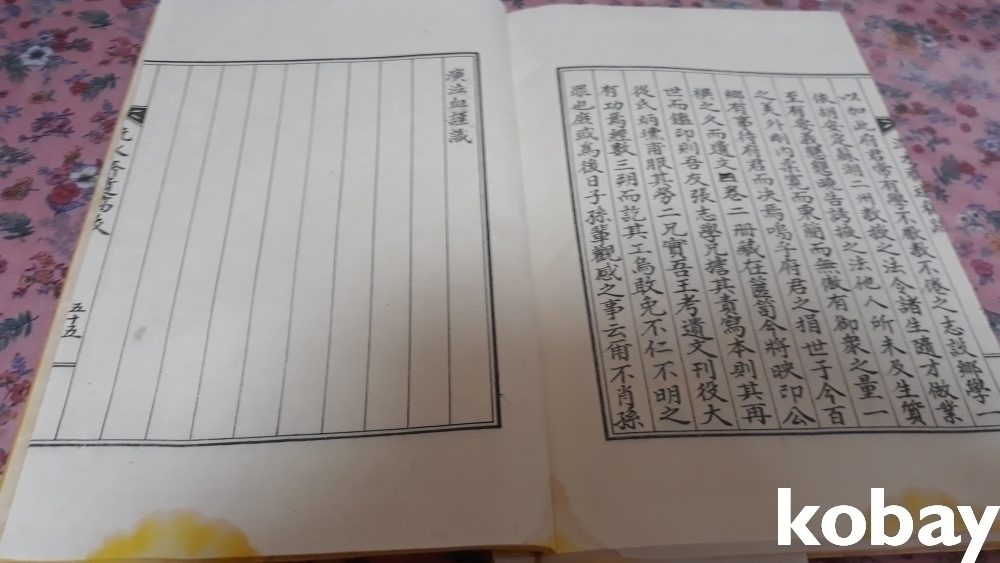 以加此府君常有學不厭敎不倦之志設鄕學一
依胡安定蘇湖二州敎授之法令諸生隨才倣業
至有愛義懇懇曉告誘掖之法他人所未及生質
之美外剛內柔寬而栗簡而無傲有御衆之量一
鄕有事待府君而決焉嗚乎府君之捐世于今百
禩之久而遺文四卷二冊藏在篋笥今將映印公
世而鑑印則吾友張志學凡擔其責寫本則其再
從氏炳 甫服其勞二兄實吾王考遺文刊役大
有功焉經數三玥而訖其工烏敢免不仁不明之
罪也庶或爲後日子孫輩觀感之事云甭不肖孫
泣血謹識
五十五
kobay